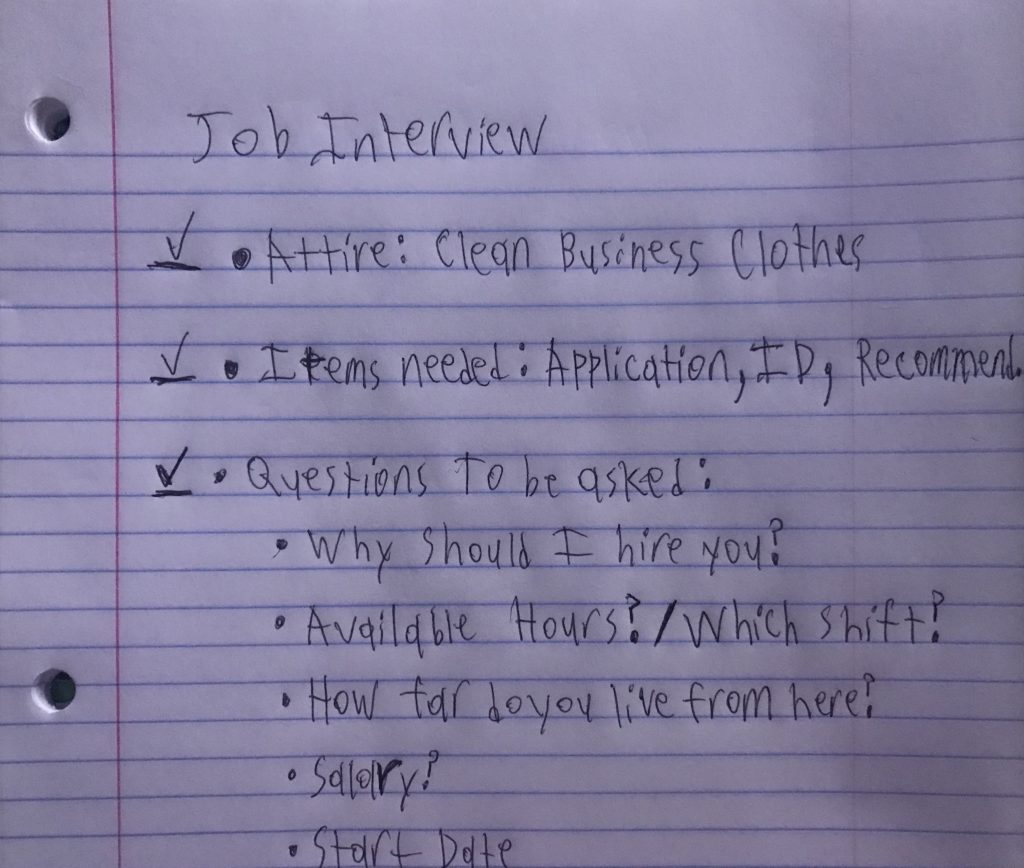 Job Interview
✓ • Attire: Clean Business Clothes
✓ • Items needed: Application, ID, Recommend.
✓ • Questions To be asked:
• Why should I hire you?
• Available Hours? / Which shift?
• How far do you live from here?
• Salary?
• Start Date